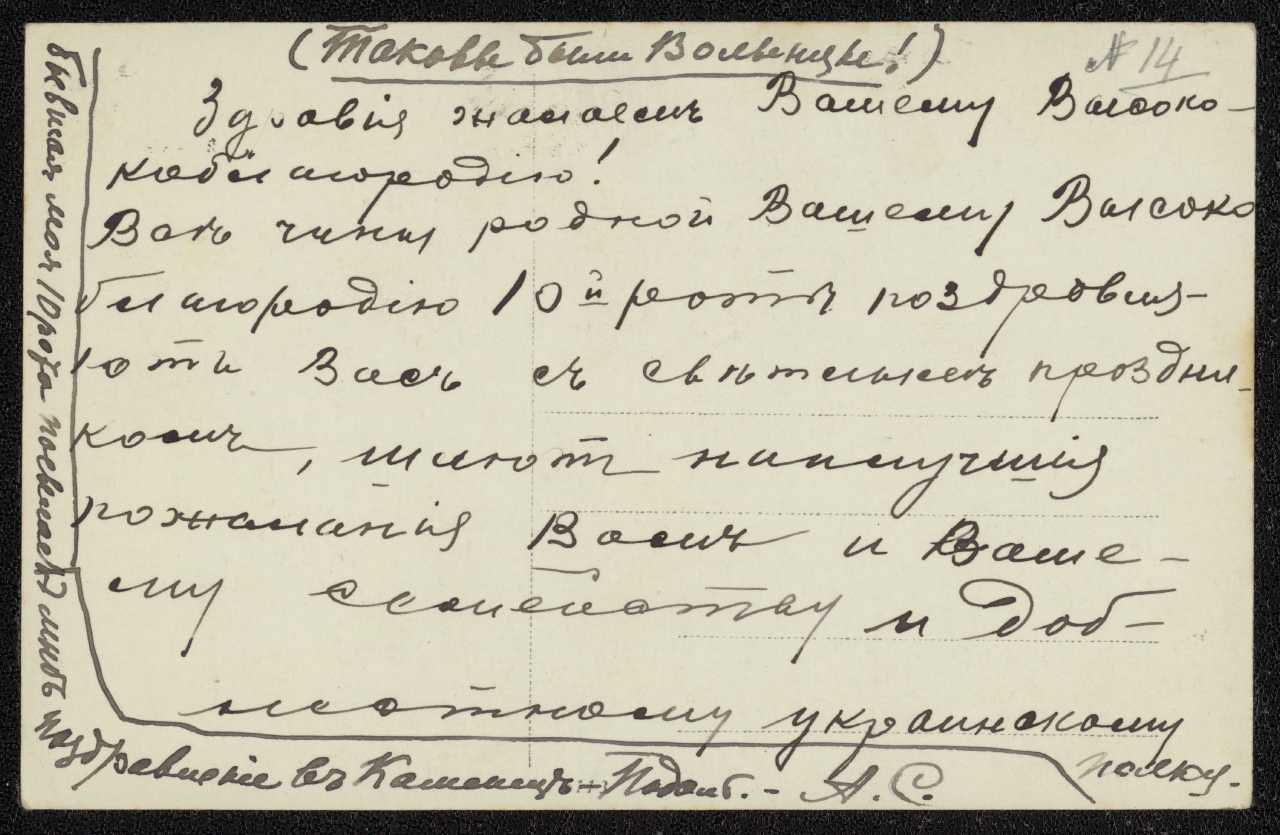 (Таковы были Волынцы!)
№ 14
Здравія желаемъ Вашему Высоко-
коблагородію!
Всѣ чины родной Вашему Высоко
благородію 10й роты поздравля-
ютъ Васъ съ свѣтлымъ праздни-
комъ, шлютъ наилучшія
пожеланія Вамъ и Ваше-
му семейству и доб-
лестному украинскому
полку.
бывшая моя 10 рота посылаетъ мнѣ поздравленіе въ Каменецъ-Подол. - А. С.